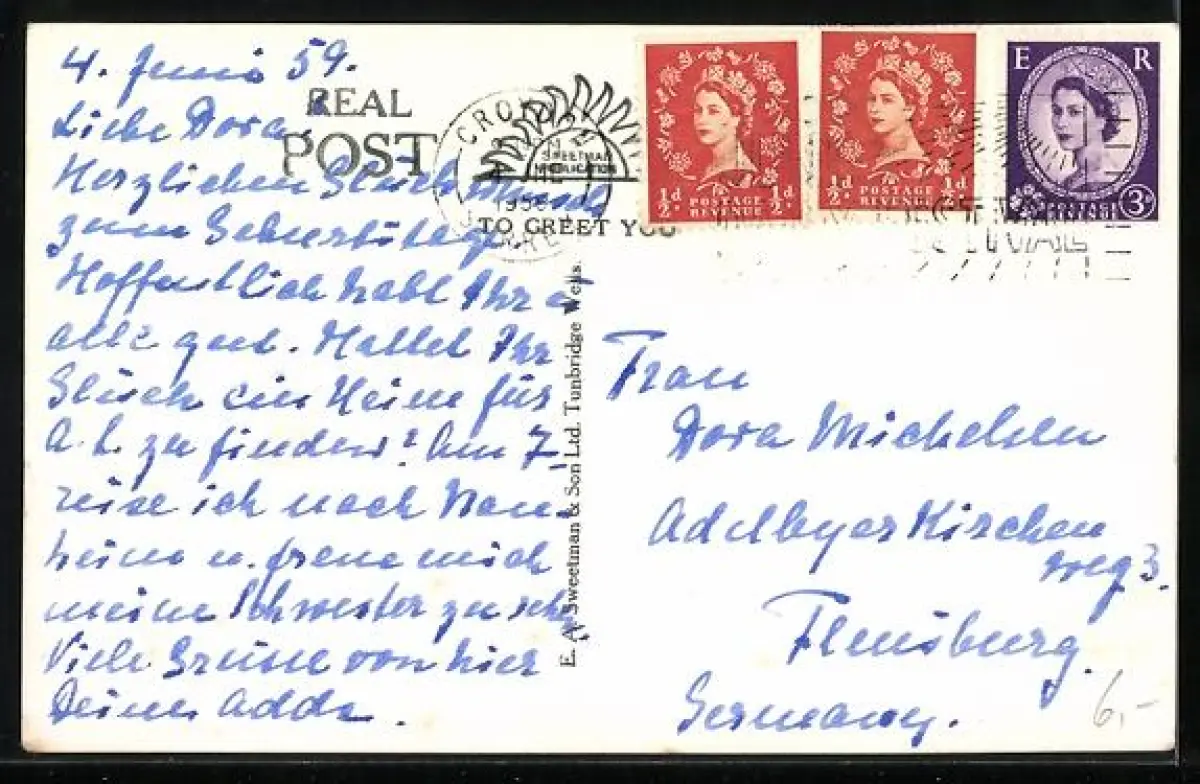 4. Juni 59.
Liebe Dora,
Herzlichen Glückwunsch
zum Geburtstage.
Hoffentlich habt Ihr es
alle gut. Hattet Ihr
Glück ein Heim für
A. L. zu finden? Am 7.
reise ich nach Nau-
heim u. freue mich
meine Schwester zu sehen
Viele Grüsse von hier
Deine Adda.
REAL
POST
CROYDON
1959
SWEETMAN
PUBLICATION
TO GREET YOU
E. A. Sweetman & Son Ltd. Tunbridge Wells.
½d. POSTAGE REVENUE ½d.
½d. POSTAGE REVENUE ½d.
E R
POSTAGE REVENUE 3D
Frau
Dora Michelsen
Adelbyer Kirchen
weg 3.
Flensburg.
Germany.
6,-